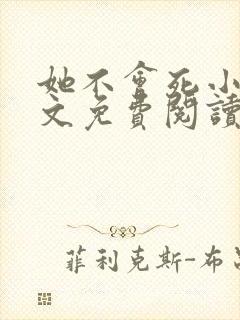 她不會死小
文免費閱讀
菲利克斯-布呂